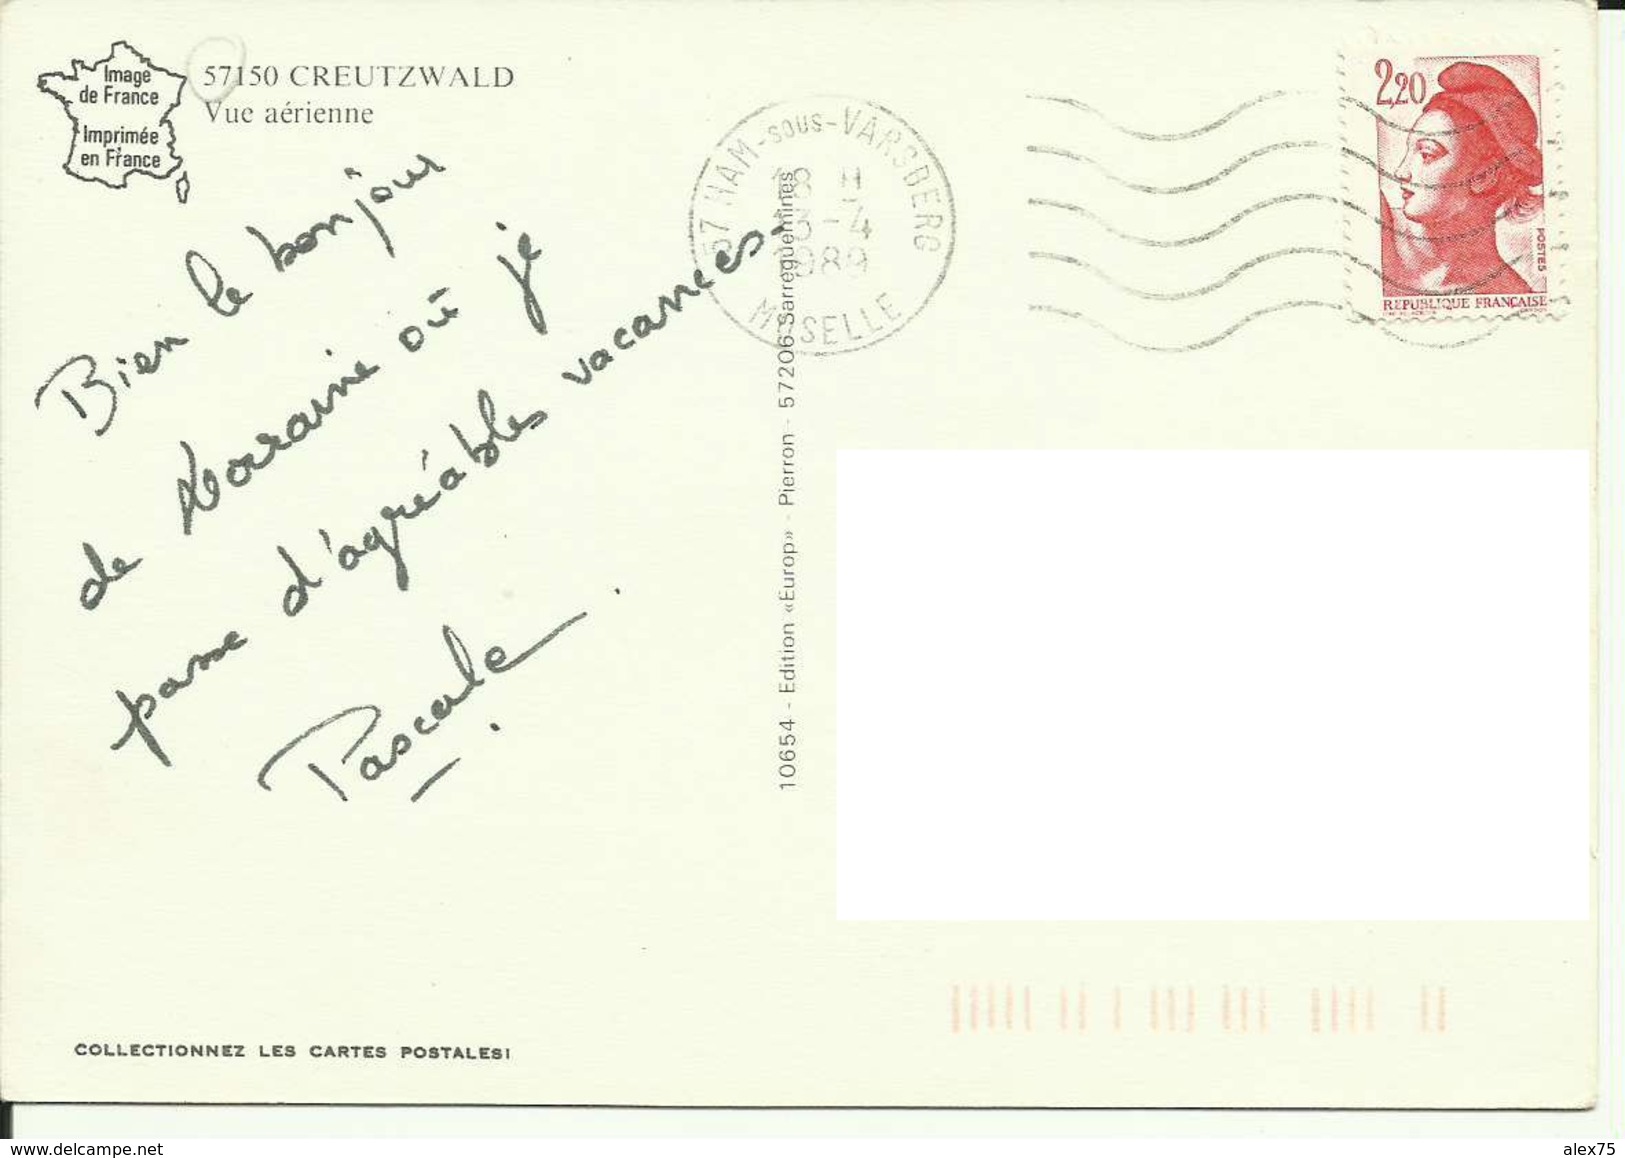 Image
de France
Imprimée
en France
57150 CREUTZWALD
Vue aérienne
Bien le bonjour
de Lorraine où je
passe d'agréables vacances.
Pascale.
COLLECTIONNEZ LES CARTES POSTALES!
10654 - Edition «Europ» - Pierron - 57206 Sarreguemines
57 HAM-SOUS-VARSBERG
18 H
13-4
1989
MOSELLE
2,20
POSTES
REPUBLIQUE FRANÇAISE
delcampe.net
alex75